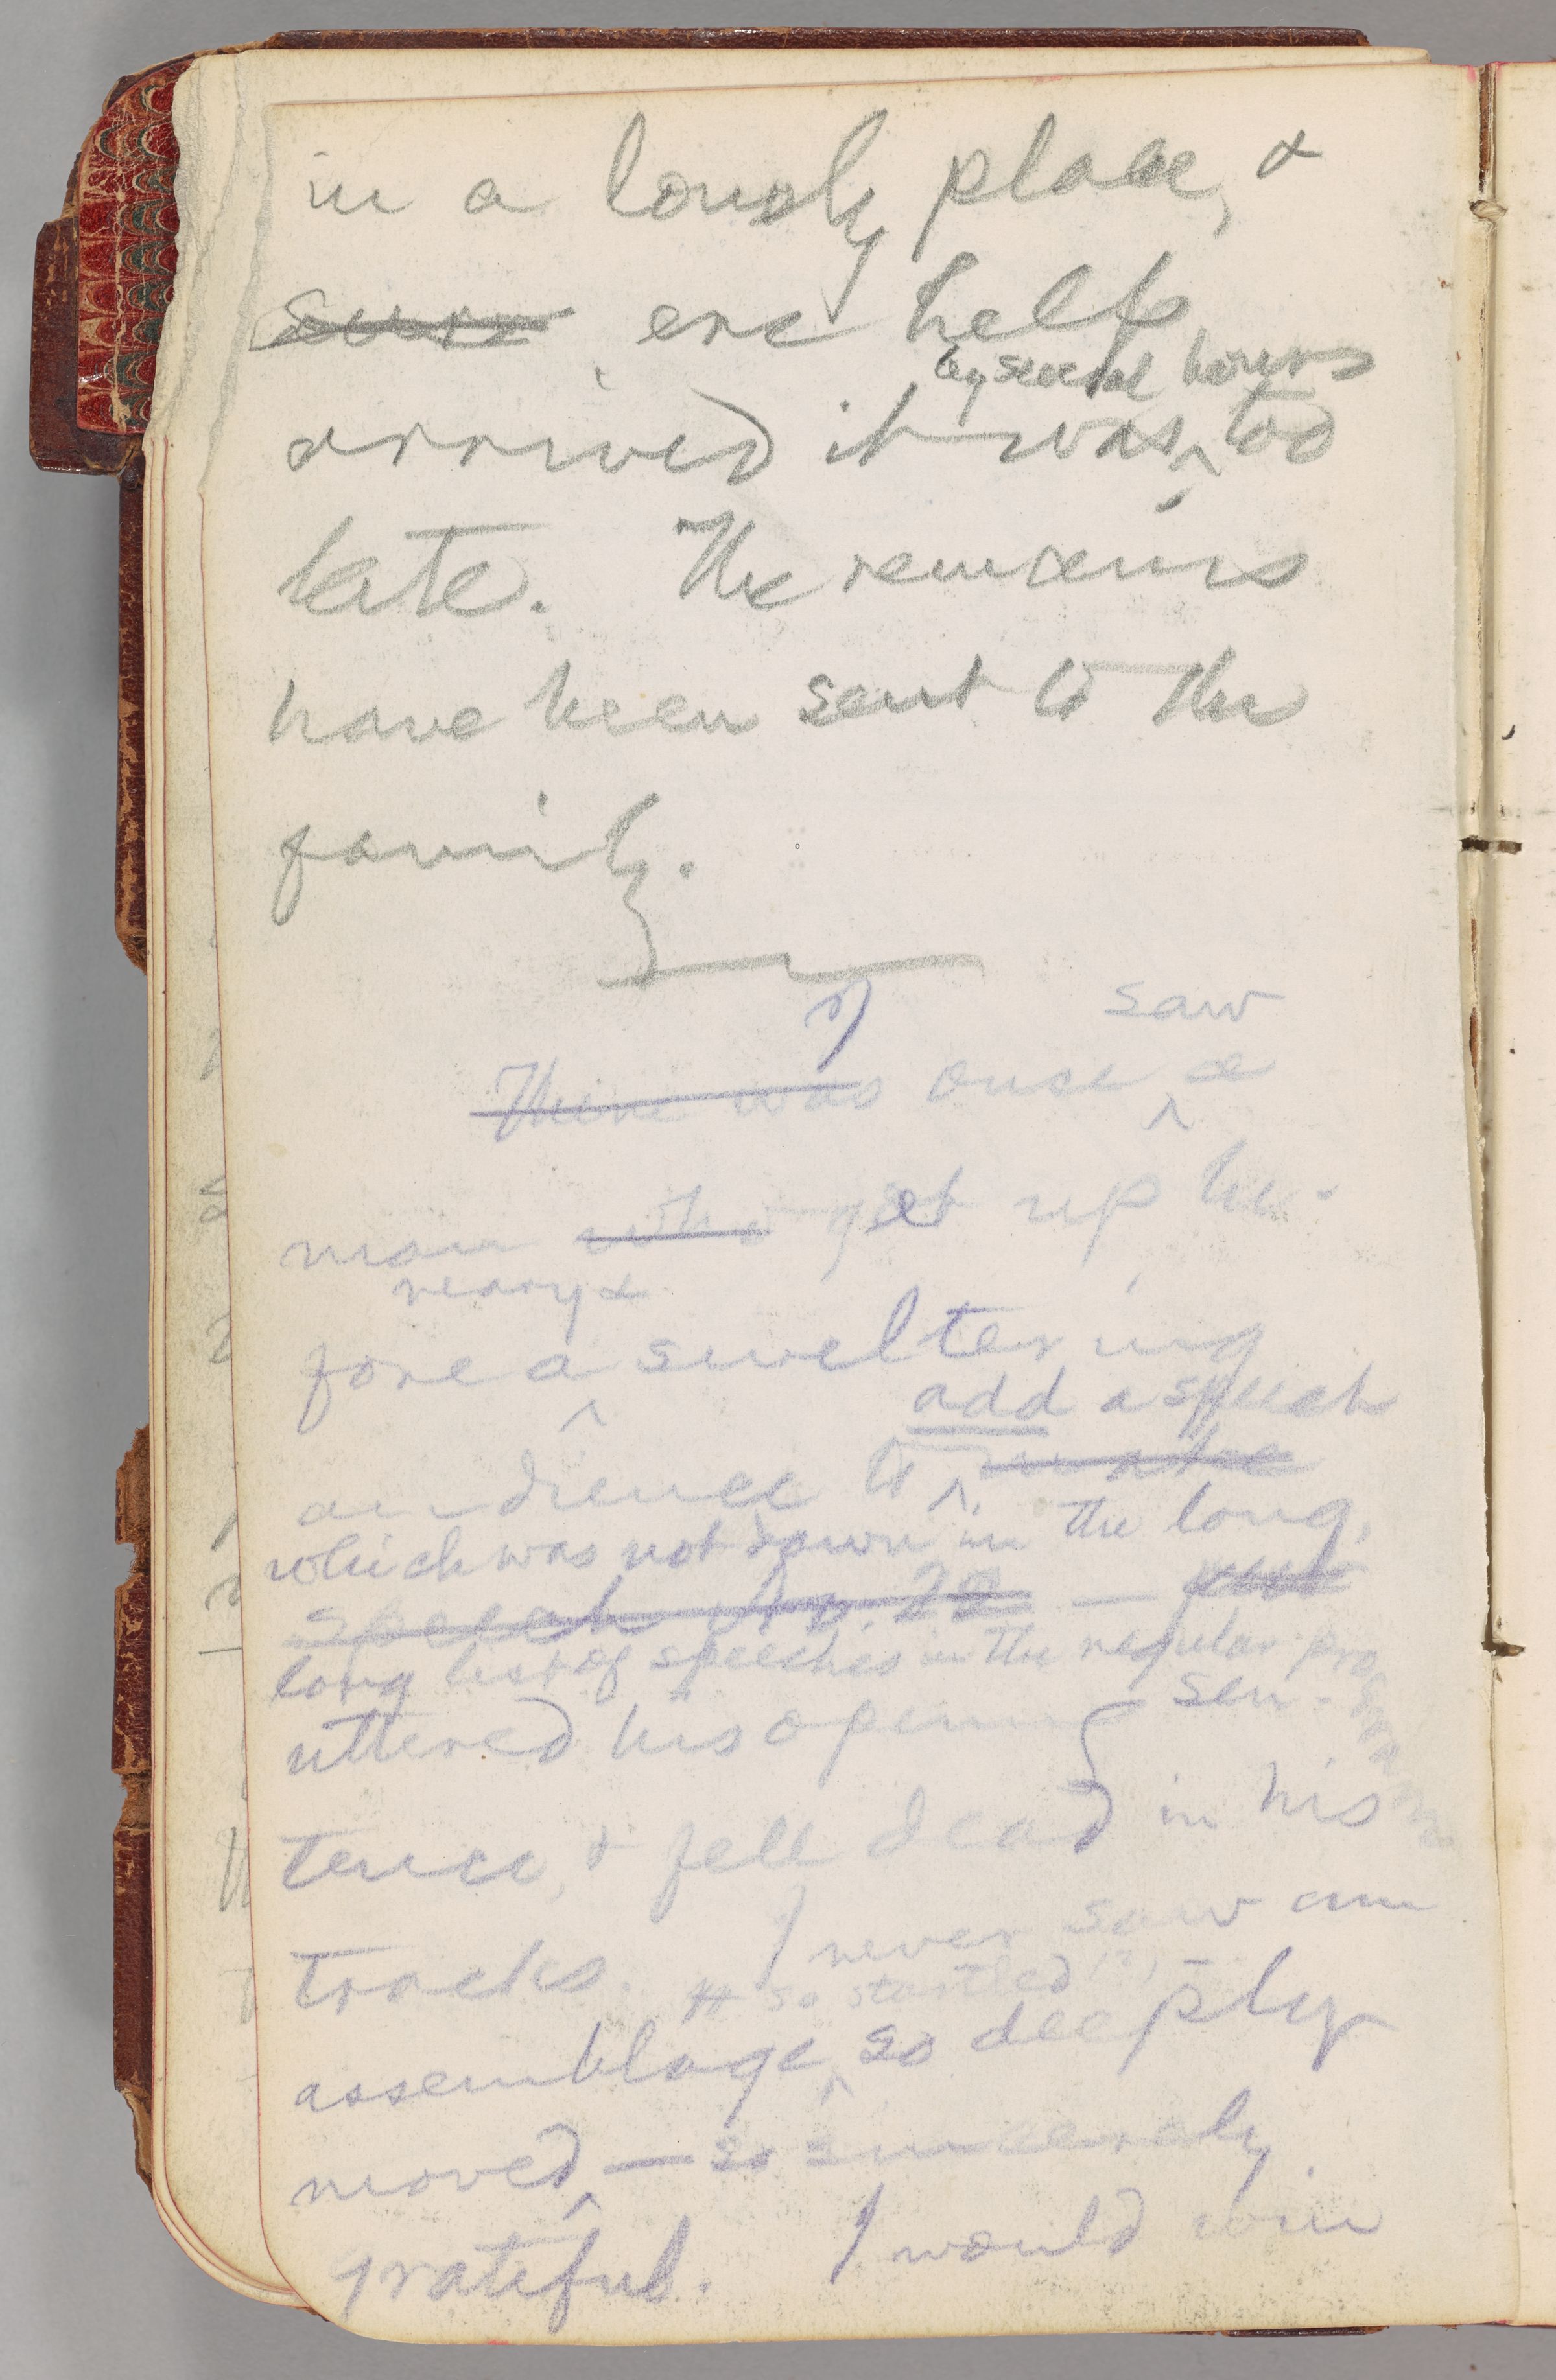 in a lonely place, &
ere help
by several hours
arrived it was ^ too
late. The remains
have been sent to the
family.
I saw
There was once ^ a
man who get up be-
neary &
fore a ^ sweltering
add a speech
audience to ^ make
which was not down in the long,
speech No. 22 —
long list of speeches in the regular programme
uttered his opening sen-
tence, & fell dead in his
tracks. I never saw an
so startled (?) —
assemblage, ^ so deeply
moved ^ — so sincerely
grateful. I would